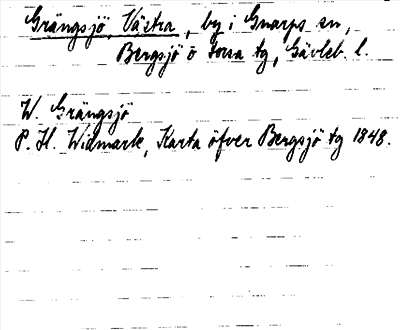 Grängsjö, Västra, by i Gnarps sn,
Bergsjö o Forsa tg, Gävleb. l.
W. Grängsjö
P. H. Widmark, Karta öfver Bergsjö tg 1848.